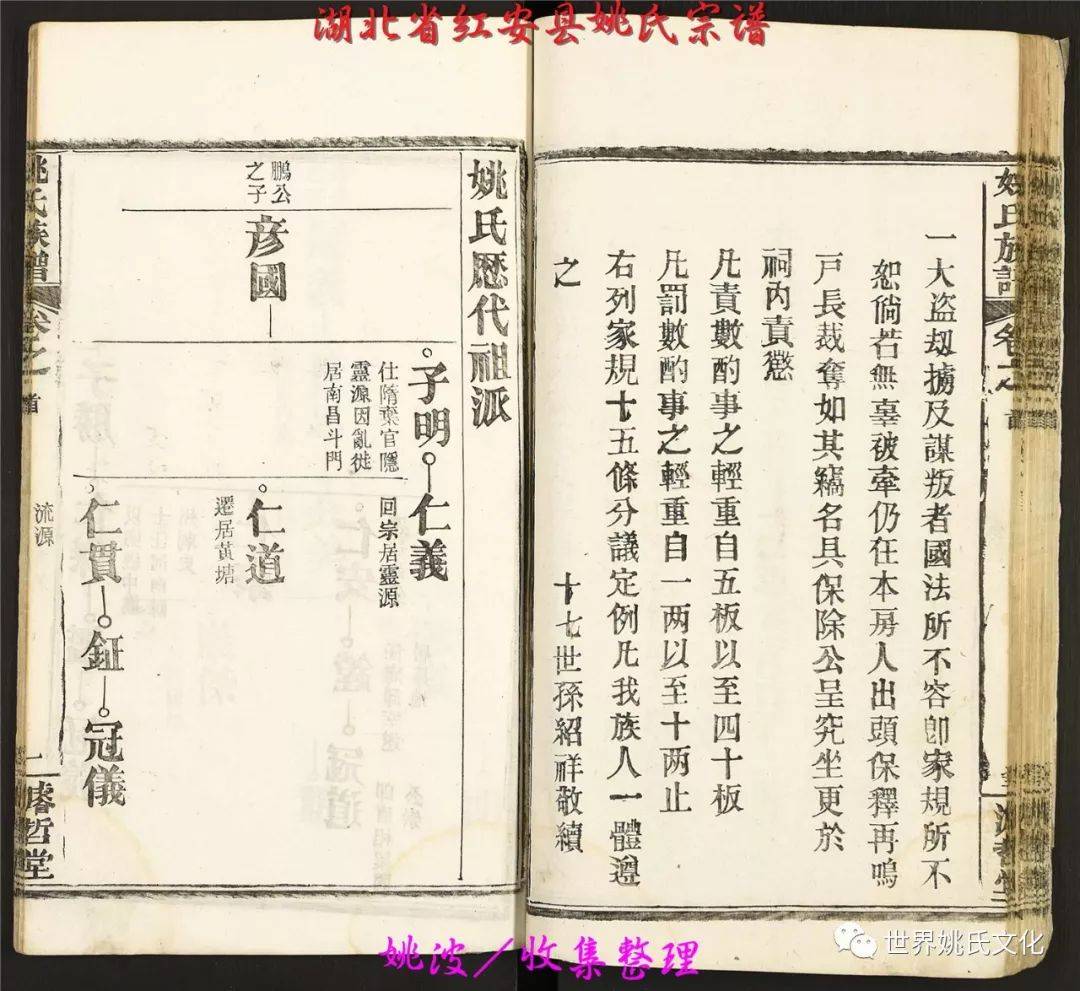 湖北省红安县姚氏宗谱
一大盜刼擄及謀叛者國法所不容卽家規所不
恕倘若無辜被牽仍在本房人出頭保釋再鳴
戸長裁奪如其竊名具保除公呈究坐更於
祠內責懲
凡責數酌事之輕重自五板以至四十板
凡罰數酌事之輕重自一两以至十两止
右列家規十五條分議定例凡我族人一體遵
之
十七世孫紹祥敬續
姚氏歷代祖派
鵬公
之子
彦國
子明
仕隋棄官隱
靈源因亂徙
居南昌斗門
仁義
回宗居靈源
仁道
遷居黃塘
仁貫
鉦
冠儀
流源
姚氏族譜
卷之
首
二
濬哲堂
姚氏族譜
卷之
首
濬哲堂
姚波／收集整理
世界姚氏文化